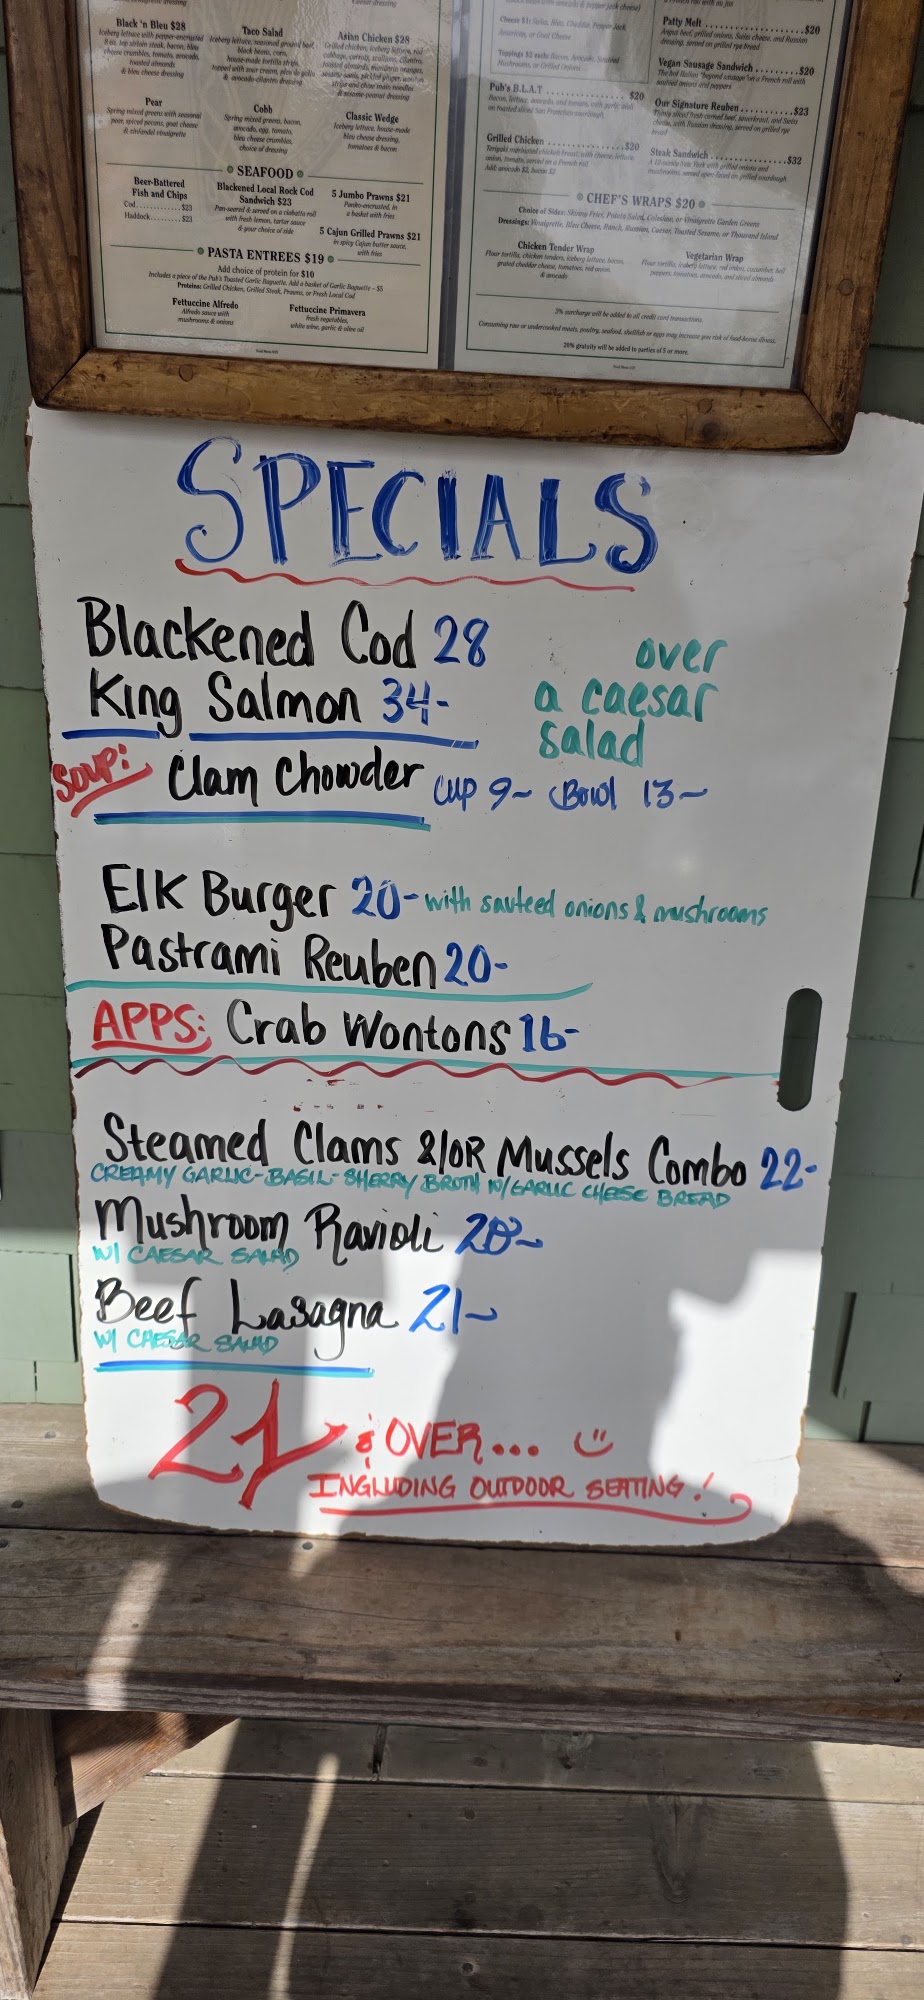 Black 'n Bleu $28
Iceberg lettuce with pepper-encrusted
8 oz. top sirloin steak, bacon, bleu
cheese crumbles, tomato, avocado,
toasted almonds
& bleu cheese dressing
Taco Salad
Iceberg lettuce, seasoned ground beef,
black beans, corn,
house-made tortilla strips,
topped with sour cream, pico de gallo
& avocado-cilantro dressing
Asian Chicken $28
Grilled chicken, iceberg lettuce, red
cabbage, carrots, scallions, cilantro,
toasted almonds, mandarin oranges,
sesame seeds, pickled ginger, wonton
strips and chow mein noodles
& sesame-peanut dressing
Pear
Spring mixed greens with seasonal
pear, spiced pecans, goat cheese
& vinaigrette
Cobb
Spring mixed greens, bacon,
avocado, egg, tomato,
bleu cheese crumbles,
choice of dressing
Classic Wedge
Iceberg lettuce, house-made
bleu cheese dressing,
tomatoes & bacon
SEAFOOD
Beer-Battered
Fish and Chips
Cod............$23
Haddock............$23
Blackened Local Rock Cod
Sandwich $23
Pan-seared & served on a ciabatta roll
with fresh lemon, tartar sauce
& your choice of side
5 Jumbo Prawns $21
Panko-encrusted, in
a basket with fries
5 Cajun Grilled Prawns $21
in spicy Cajun butter sauce,
with fries
PASTA ENTREES $19
Add choice of protein for $10
Includes a piece of the Pub's Toasted Garlic Baguette. Add a basket of Garlic Baguette – $5
Proteins: Grilled Chicken, Grilled Steak, Prawns, or Fresh Local Cod
Fettuccine Alfredo
Alfredo sauce with
mushrooms & onions
Fettuccine Primavera
fresh vegetables,
white wine, garlic & olive oil
Cheese $1: Swiss, Bleu, Cheddar, Pepper Jack,
American, or Goat Cheese
Toppings $2 each: Bacon, Avocado, Sautéed
Mushrooms, or Grilled Onions
Pub's B.L.A.T ............ $20
Bacon, lettuce, avocado, and tomato, with garlic aioli
on toasted sliced San Francisco sourdough
Grilled Chicken ............ $20
Teriyaki marinated chicken breast, with cheese, lettuce
onion, tomato, served on a French roll
Add: avocado $2, bacon $2
Patty Melt ............ $20
Angus beef, grilled onions, Swiss cheese, and Russian
dressing, served on grilled rye bread
Vegan Sausage Sandwich ............ $20
The hot Italian "beyond sausage" on a French roll with
sautéed onions and peppers
Our Signature Reuben ............ $23
Thinly sliced fresh corned beef, sauerkraut, and Swiss
cheese, with Russian dressing, served on grilled rye
bread
Steak Sandwich ............ $32
A 12-ounce New York with grilled onions and
mushrooms, served open-faced on grilled sourdough
CHEF'S WRAPS $20
Choice of Sides: Skinny Fries, Potato Salad, Coleslaw, or Vinaigrette Garden Greens
Dressings: Vinaigrette, Bleu Cheese, Ranch, Russian, Caesar, Toasted Sesame, or Thousand Island
Chicken Tender Wrap
Flour tortilla, chicken tenders, iceberg lettuce, bacon,
grated cheddar cheese, tomatoes, red onion,
& avocado
Vegetarian Wrap
Flour tortilla, iceberg lettuce, red onion, cucumber, bell
peppers, tomatoes, avocado, and sliced almonds
3% surcharge will be added to all credit card transactions.
Consuming raw or undercooked meats, poultry, seafood, shellfish or eggs may increase you risk of food-borne illness.
20% gratuity will be added to parties of 5 or more.
SPECIALS
Blackened Cod 28
King Salmon 34-
over
a caesar
salad
SOUP: Clam Chowder Cup 9~ Bowl 13~
Elk Burger 20- with sauteed onions & mushrooms
Pastrami Reuben 20-
APPS: Crab Wontons 16-
Steamed Clams &/OR Mussels Combo 22-
CREAMY GARLIC-BASIL-SHERRY BROTH W/GARLIC CHEESE BREAD
Mushroom Ravioli 20~
W/ CAESAR SALAD
Beef Lasagna 21~
W/ CAESAR SALAD
21 & OVER... :)
INCLUDING OUTDOOR SEATING!